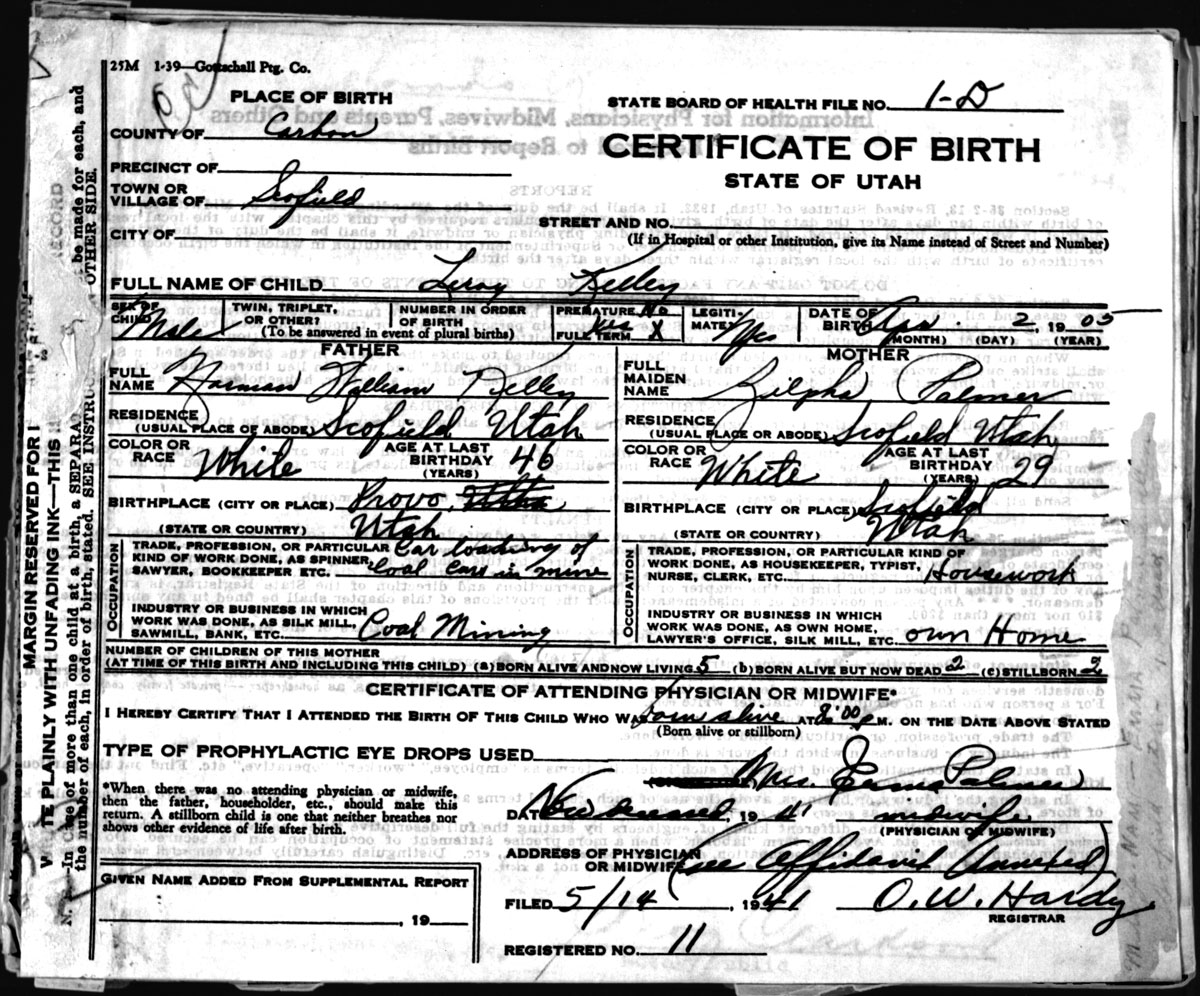 25M 1-39—Gottschall Ptg. Co.
PLACE OF BIRTH
COUNTY OF Carbon
PRECINCT OF
TOWN OR
VILLAGE OF Scofield
CITY OF
STATE BOARD OF HEALTH FILE NO. 1-D
CERTIFICATE OF BIRTH
STATE OF UTAH
STREET AND NO.
(If in Hospital or other Institution, give its Name instead of Street and Number)
FULL NAME OF CHILD Leroy Kelley
SEX OF CHILD Male
TWIN, TRIPLET, OR OTHER?
NUMBER IN ORDER OF BIRTH
(To be answered in event of plural births)
PREMATURE No
FULL TERM Yes X
LEGITIMATE? Yes
DATE OF BIRTH 2 1905
(MONTH) (DAY) (YEAR)
FATHER
FULL NAME Norman William Kelley
RESIDENCE
(USUAL PLACE OF ABODE) Scofield Utah
COLOR OR RACE White
AGE AT LAST BIRTHDAY 46
(YEARS)
BIRTHPLACE (CITY OR PLACE) Provo, Utah
(STATE OR COUNTRY) Utah
OCCUPATION
TRADE, PROFESSION, OR PARTICULAR KIND OF WORK DONE, AS SPINNER, SAWYER, BOOKKEEPER ETC. Car loading of Coal Cars in mine
INDUSTRY OR BUSINESS IN WHICH WORK WAS DONE, AS SILK MILL, SAWMILL, BANK, ETC. Coal Mining
MOTHER
FULL MAIDEN NAME Zilpha Palmer
RESIDENCE
(USUAL PLACE OF ABODE) Scofield Utah
COLOR OR RACE White
AGE AT LAST BIRTHDAY 29
(YEARS)
BIRTHPLACE (CITY OR PLACE) Scofield
(STATE OR COUNTRY) Utah
OCCUPATION
TRADE, PROFESSION, OR PARTICULAR KIND OF WORK DONE, AS HOUSEKEEPER, TYPIST, NURSE, CLERK, ETC. Housework
INDUSTRY OR BUSINESS IN WHICH WORK WAS DONE, AS OWN HOME, LAWYER'S OFFICE, SILK MILL, ETC. own Home
NUMBER OF CHILDREN OF THIS MOTHER
(AT TIME OF THIS BIRTH AND INCLUDING THIS CHILD) (a) BORN ALIVE AND NOW LIVING 5 (b) BORN ALIVE BUT NOW DEAD 2 (c) STILLBORN 2
CERTIFICATE OF ATTENDING PHYSICIAN OR MIDWIFE*
I HEREBY CERTIFY THAT I ATTENDED THE BIRTH OF THIS CHILD WHO WAS born alive AT 8:00 P M. ON THE DATE ABOVE STATED
(Born alive or stillborn)
TYPE OF PROPHYLACTIC EYE DROPS USED
*When there was no attending physician or midwife,
then the father, householder, etc., should make this
return. A stillborn child is one that neither breathes nor
shows other evidence of life after birth.
Mrs. Palmer
DATE Now deceased 1941 midwife
(PHYSICIAN OR MIDWIFE)
ADDRESS OF PHYSICIAN
OR MIDWIFE (see Affidavit Annexed)
GIVEN NAME ADDED FROM SUPPLEMENTAL REPORT
, 19
FILED 5/14, 1941 O. W. Hardy
REGISTRAR
REGISTERED NO. 11
MARGIN RESERVED FOR
WRITE PLAINLY WITH UNFADING INK—THIS
RECORD
N. In case of more than one child at a birth, a SEPARA be made for each, and
the number of each, in order of birth, stated. SEE INSTRUC OTHER SIDE.